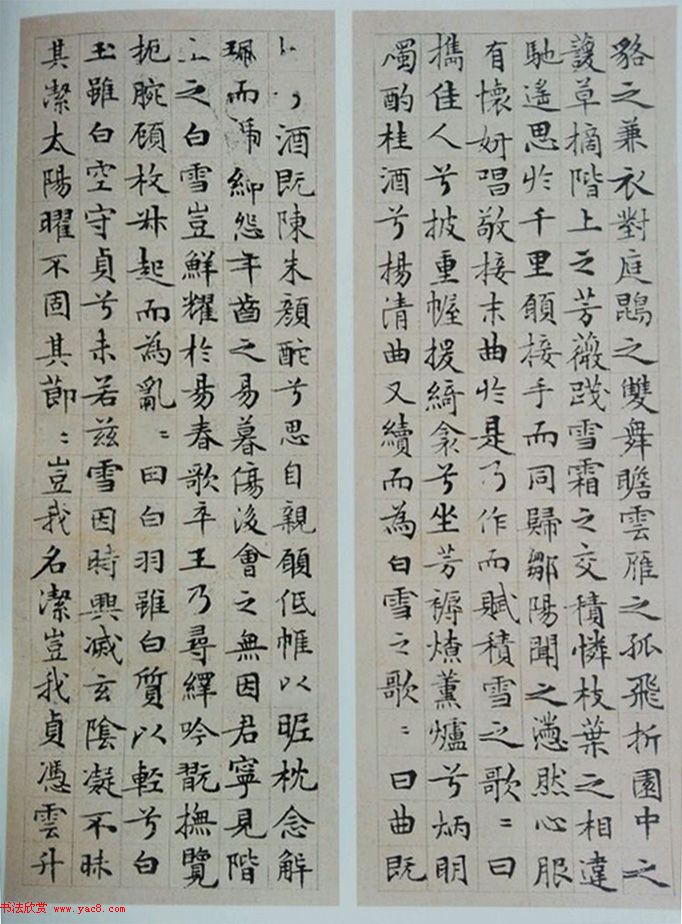 貉之兼衣對庭鵾之雙舞瞻雲雁之孤飛折園中之
草摘階上之芳薇踐雪霜之交積憐枝葉之相違
馳遙思於千里願接手而同歸鄒陽聞之懣然心服
有懷妍唱敬接末曲於是乃作而賦積雪之歌〻曰
攜佳人兮披重幄援綺衾兮坐芳褥燎薰爐兮炳明
燭酌桂酒兮揚清曲又續而為白雪之歌〻曰曲既
酒既陳朱顏酡兮思自親願低帷以昵枕念解
珮而褫紳怨年之易暮傷後會之無因君寧見階
之白雪豈鮮耀於昜春歌卒王乃尋繹吟翫撫覽
扼腕顧枚叔起而為亂〻曰白羽雖白質以輕兮白
玉雖白空守貞兮未若茲雪因時興滅玄陰凝不昧
其潔太陽曜不固其節〻豈我名潔豈我貞憑雲升
书法欣赏 www.yac8.com